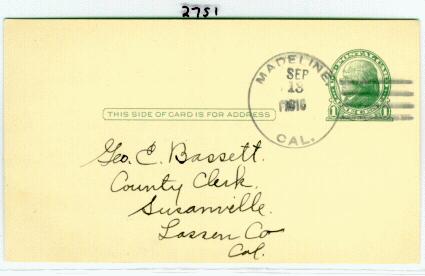 2751
MADELINE
SEP
13
1916
CAL.
THIS SIDE OF CARD IS FOR ADDRESS
Geo. E. Bassett.
County Clerk.
Susanville.
Lassen Co
Cal.